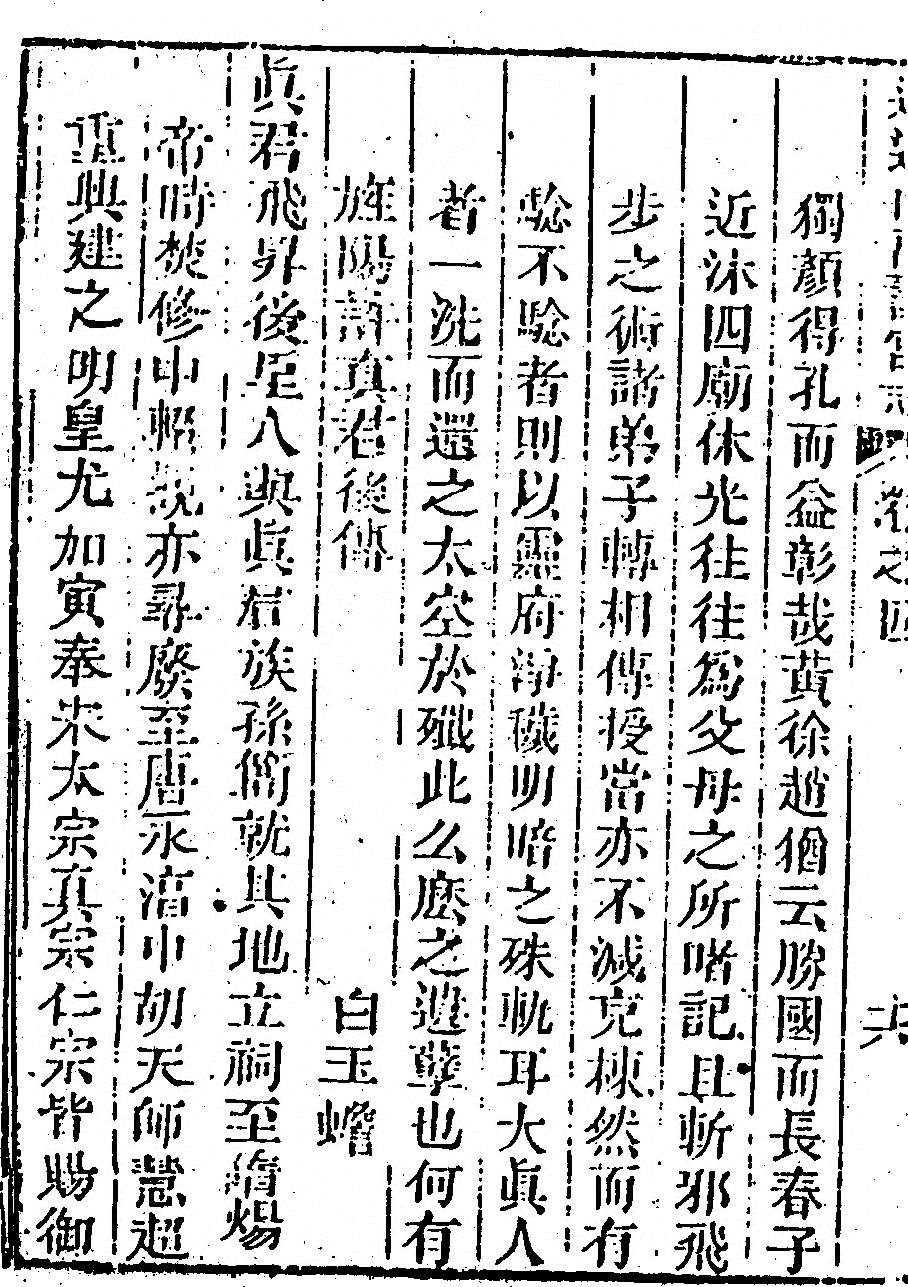 卷之四
獨顏得孔而益彰哉黃徐趙猶云勝國而長春子
近沐四廟休光往往為父母之所啫記且斬邪飛
步之術諸弟子轉相傳授當亦不減克棟然而有
騐不騐者則以靈府淨穢明暗之殊軌耳大眞人
者一洗而還之太空於殲此么麽之遊孽也何有
旌陽許真君後傳 白玉蟾
眞君飛昇後至八與眞君族孫簡就其地立祠至隋煬
帝時焚修中輟觀亦尋廢至唐永淳中胡天師慧超
重興建之明皇尤加寅奉宋太宗真宗仁宗皆賜御